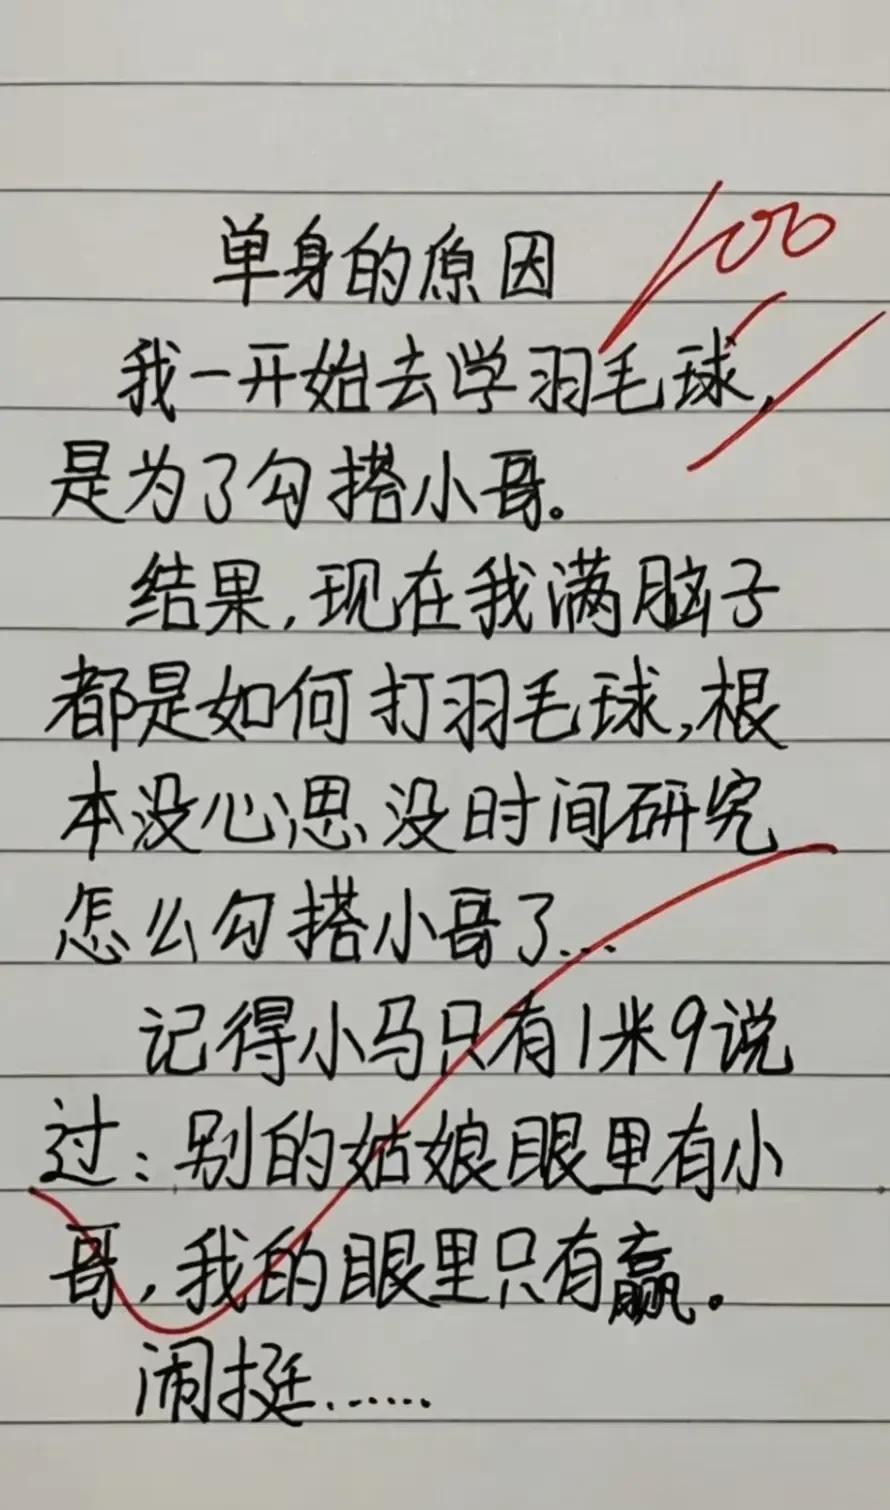 单身的原因
100
我一开始去学羽毛球,
是为了勾搭小哥。
结果,现在我满脑子
都是如何打羽毛球,根
本没心思没时间研究
怎么勾搭小哥了...
记得小马只有1米9说
过:别的姑娘眼里有小
哥,我的眼里只有赢。
闹挺......